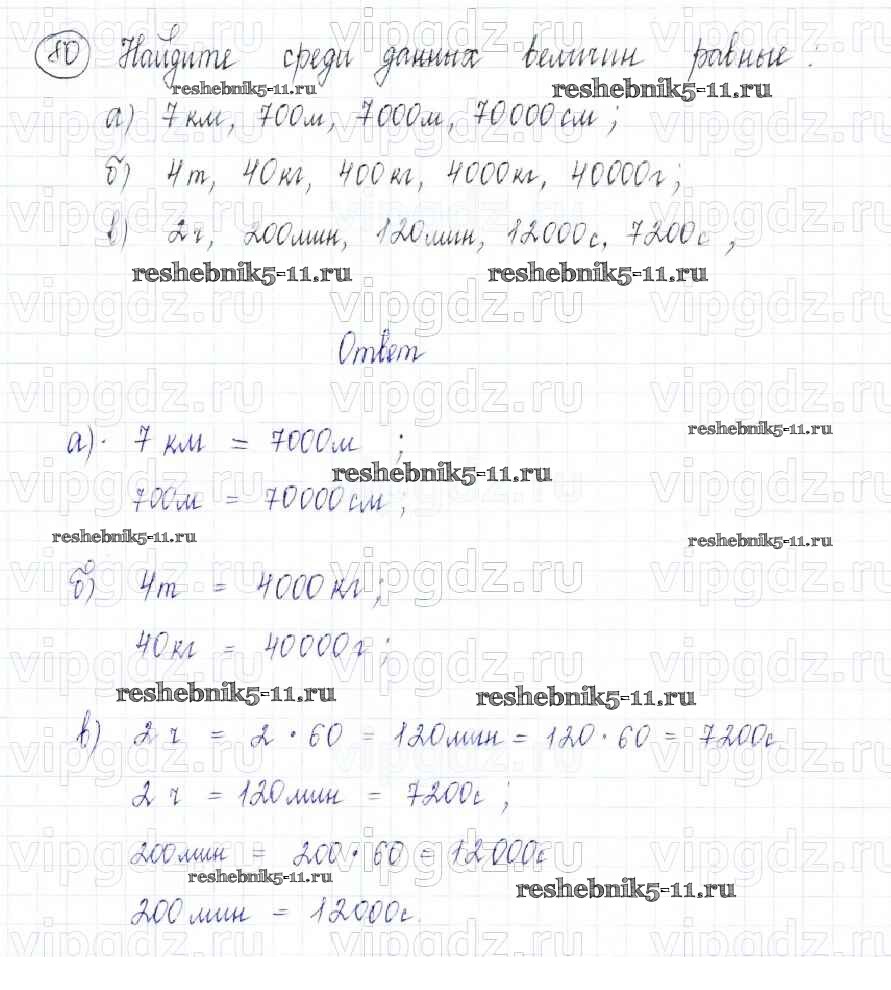 80 Найдите среди данных величин равные:
reshebnik5-11.ru reshebnik5-11.ru
а) 7 км, 700м, 7000м, 70000см;
б) 4т, 40кг, 400кг, 4000кг, 40000г;
в) 2ч, 200мин, 120мин, 12000с, 7200с,
reshebnik5-11.ru reshebnik5-11.ru
Ответ
а). 7 км = 7000м ;
reshebnik5-11.ru
reshebnik5-11.ru
700м = 70000см;
reshebnik5-11.ru reshebnik5-11.ru
б) 4т = 4000кг;
40кг = 40000г;
reshebnik5-11.ru reshebnik5-11.ru
в) 2 ч = 2 · 60 = 120мин = 120 · 60 = 7200с
2 ч = 120мин = 7200с;
200мин = 200 · 60 = 12000с
reshebnik5-11.ru reshebnik5-11.ru
200мин = 12000с.
vipgdz.ru